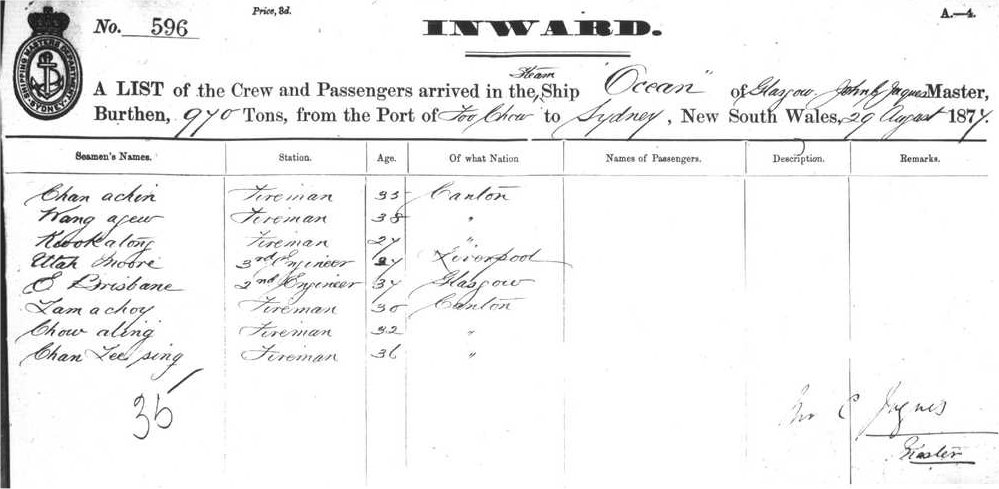 Price, 3d.
A.—4.
No. 596 INWARD.
SHIPPING MASTER'S DEPARTMENT SYDNEY
Steam
A LIST of the Crew and Passengers arrived in the Ship "Ocean" of Glasgow. John C Jaques Master,
Burthen, 970 Tons, from the Port of Foo Chow to Sydney, New South Wales, 29 August 1874.
Seamen's Names. Station. Age. Of what Nation Names of Passengers. Description. Remarks.
Chan achin Fireman 35 Canton
Wang agew Fireman 38 "
Kwok along Fireman 27 "
Utah Moore 3rd Engineer 27 Liverpool
E Brisbane 2nd Engineer 37 Glasgow
Lam a choy Fireman 30 Canton
Chow aling Fireman 32 "
Chan Lee sing Fireman 36 "
35
Jno C Jaques
Master